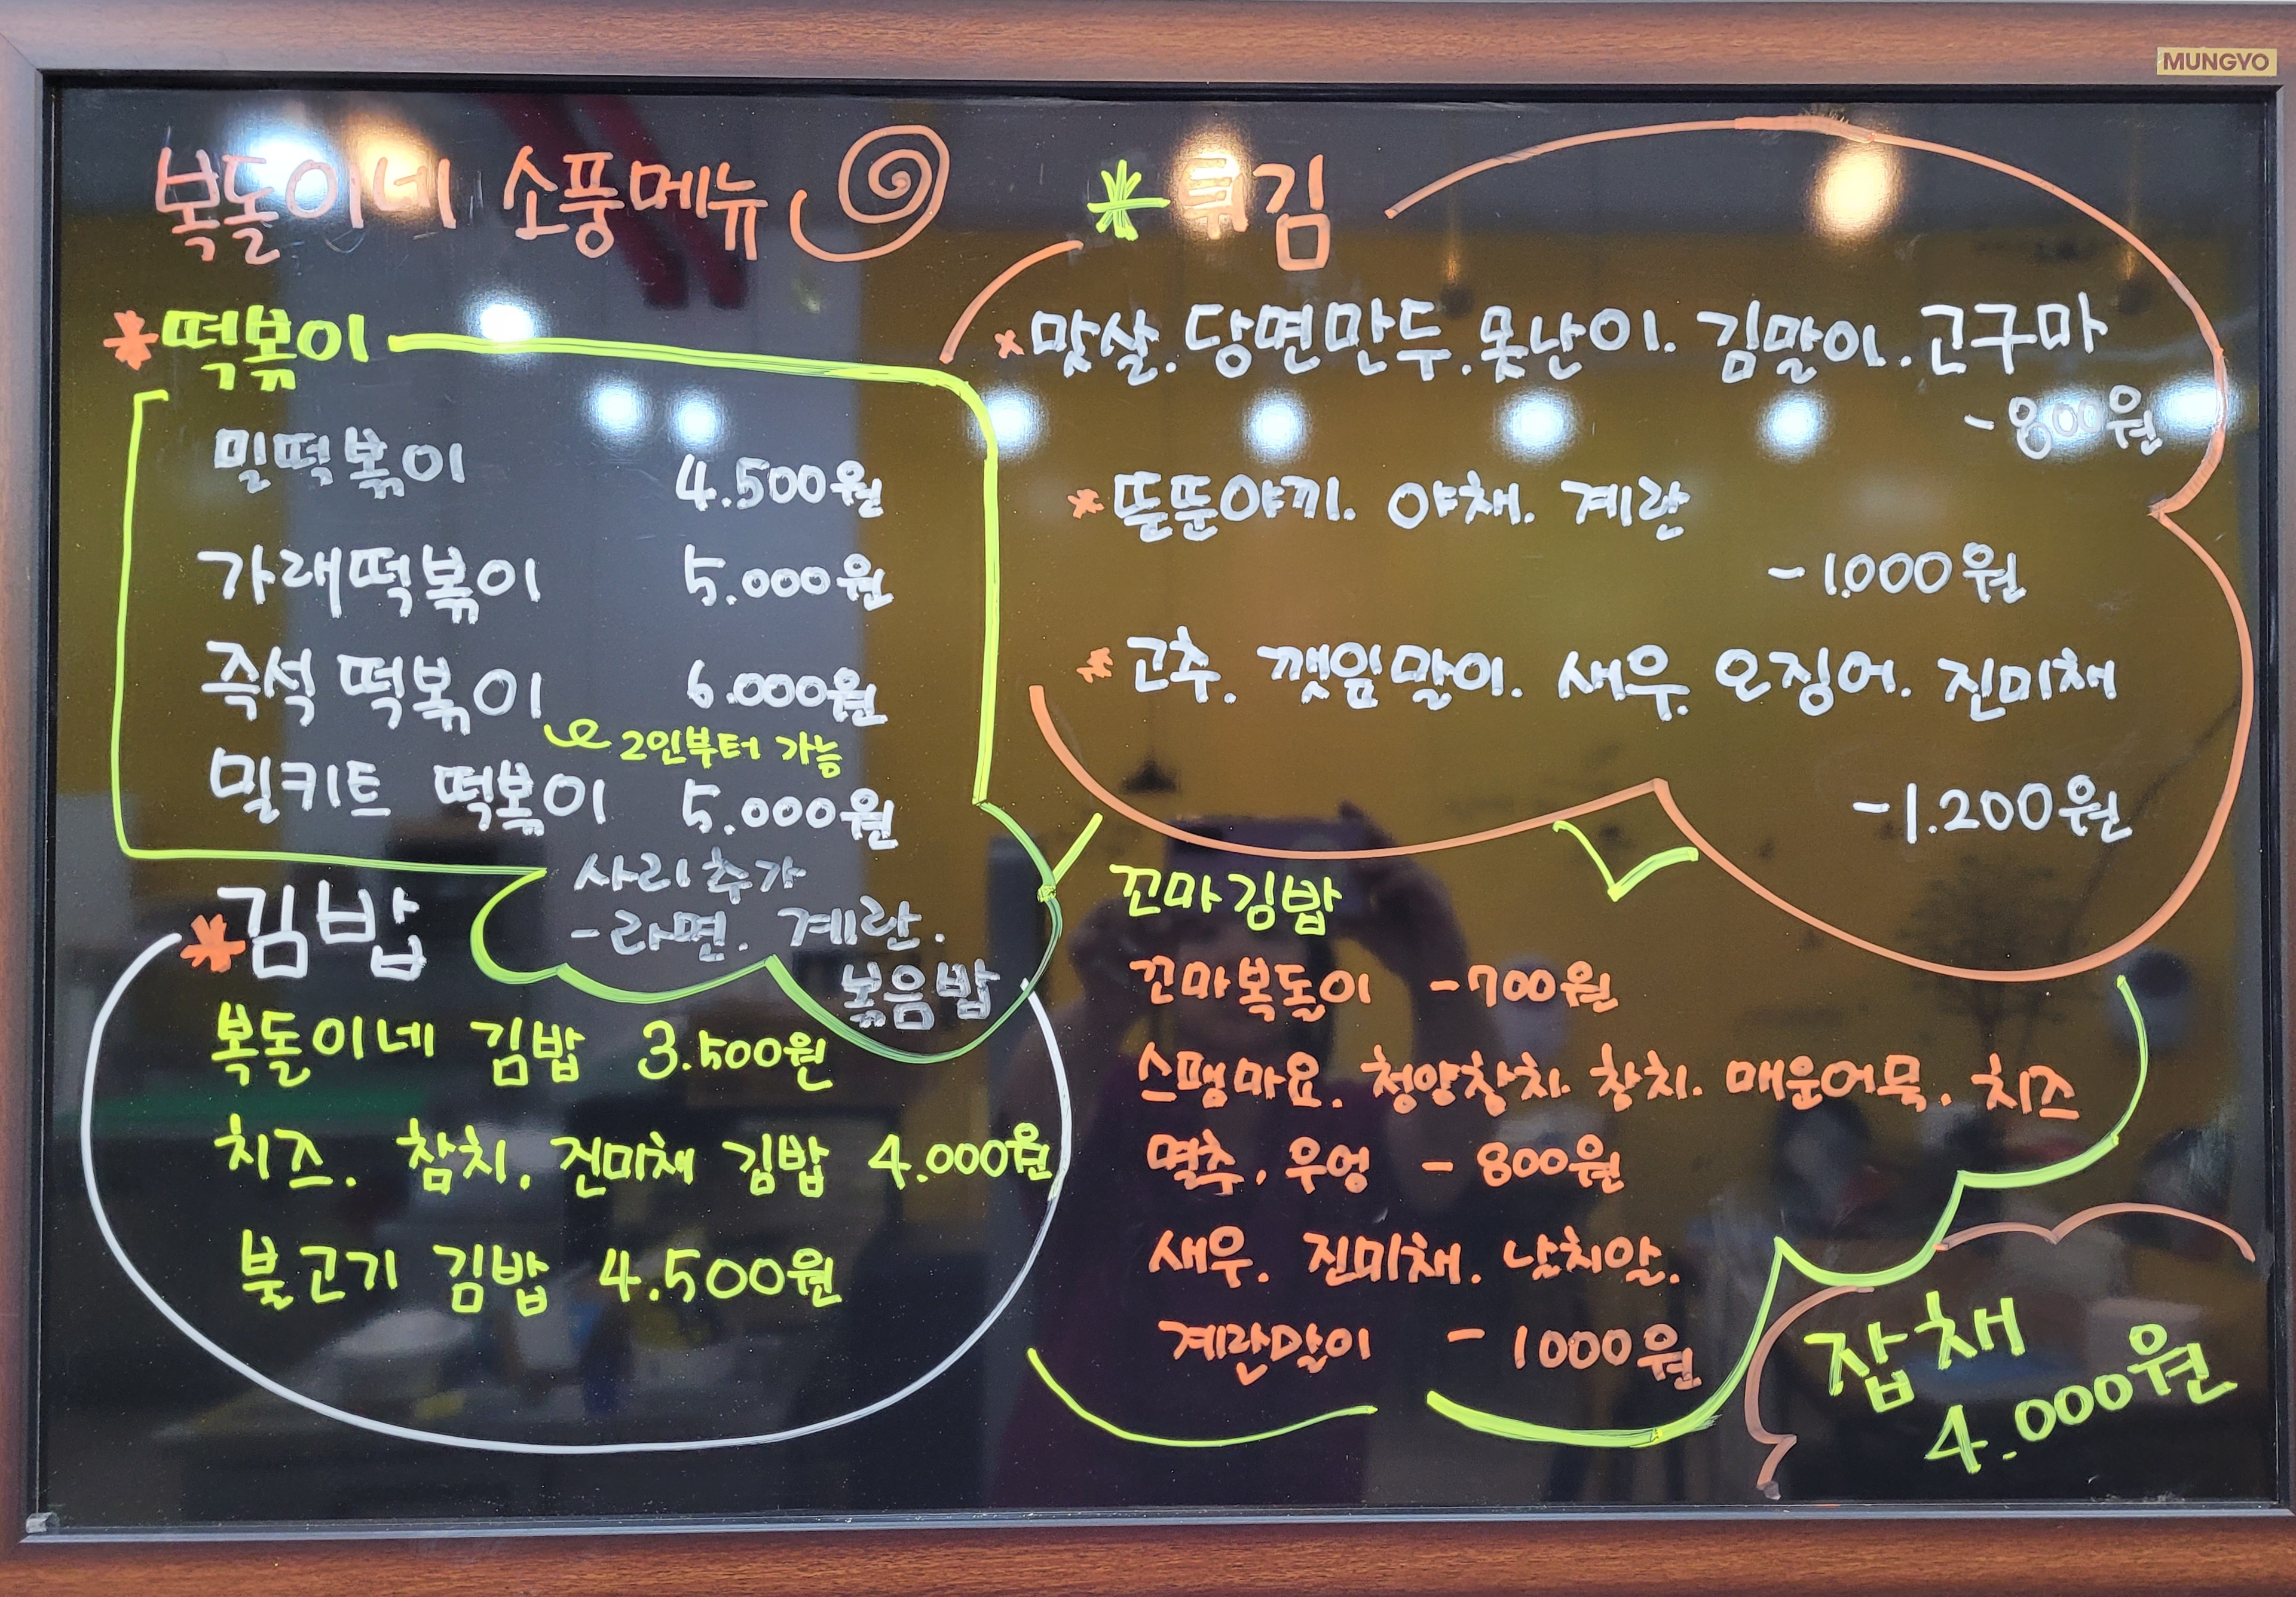 MUNGYO
복돌이네 소풍메뉴
*떡볶이
밀떡볶이 4.500원
가래떡볶이 5.000원
즉석 떡볶이 6.000원
2인부터 가능
밀키트 떡볶이 5.000원
사리추가
-라면. 계란.
볶음밥
*김밥
복돌이네 김밥 3.500원
치즈. 참치. 진미채 김밥 4.000원
불고기 김밥 4.500원
*튀김
*맛살.당면만두.못난이. 김말이.고구마
-800원
*뜬뜬야끼. 야채. 계란
-1.000원
*고추. 깻잎말이. 새우. 오징어. 진미채
-1.200원
꼬마김밥
꼬마복돌이 -700원
스팸마요. 청양참치. 참치. 매운어묵. 치즈
멸추. 우엉 - 800원
새우. 진미채. 날치알.
계란말이 - 1000원
잡채
4.000원